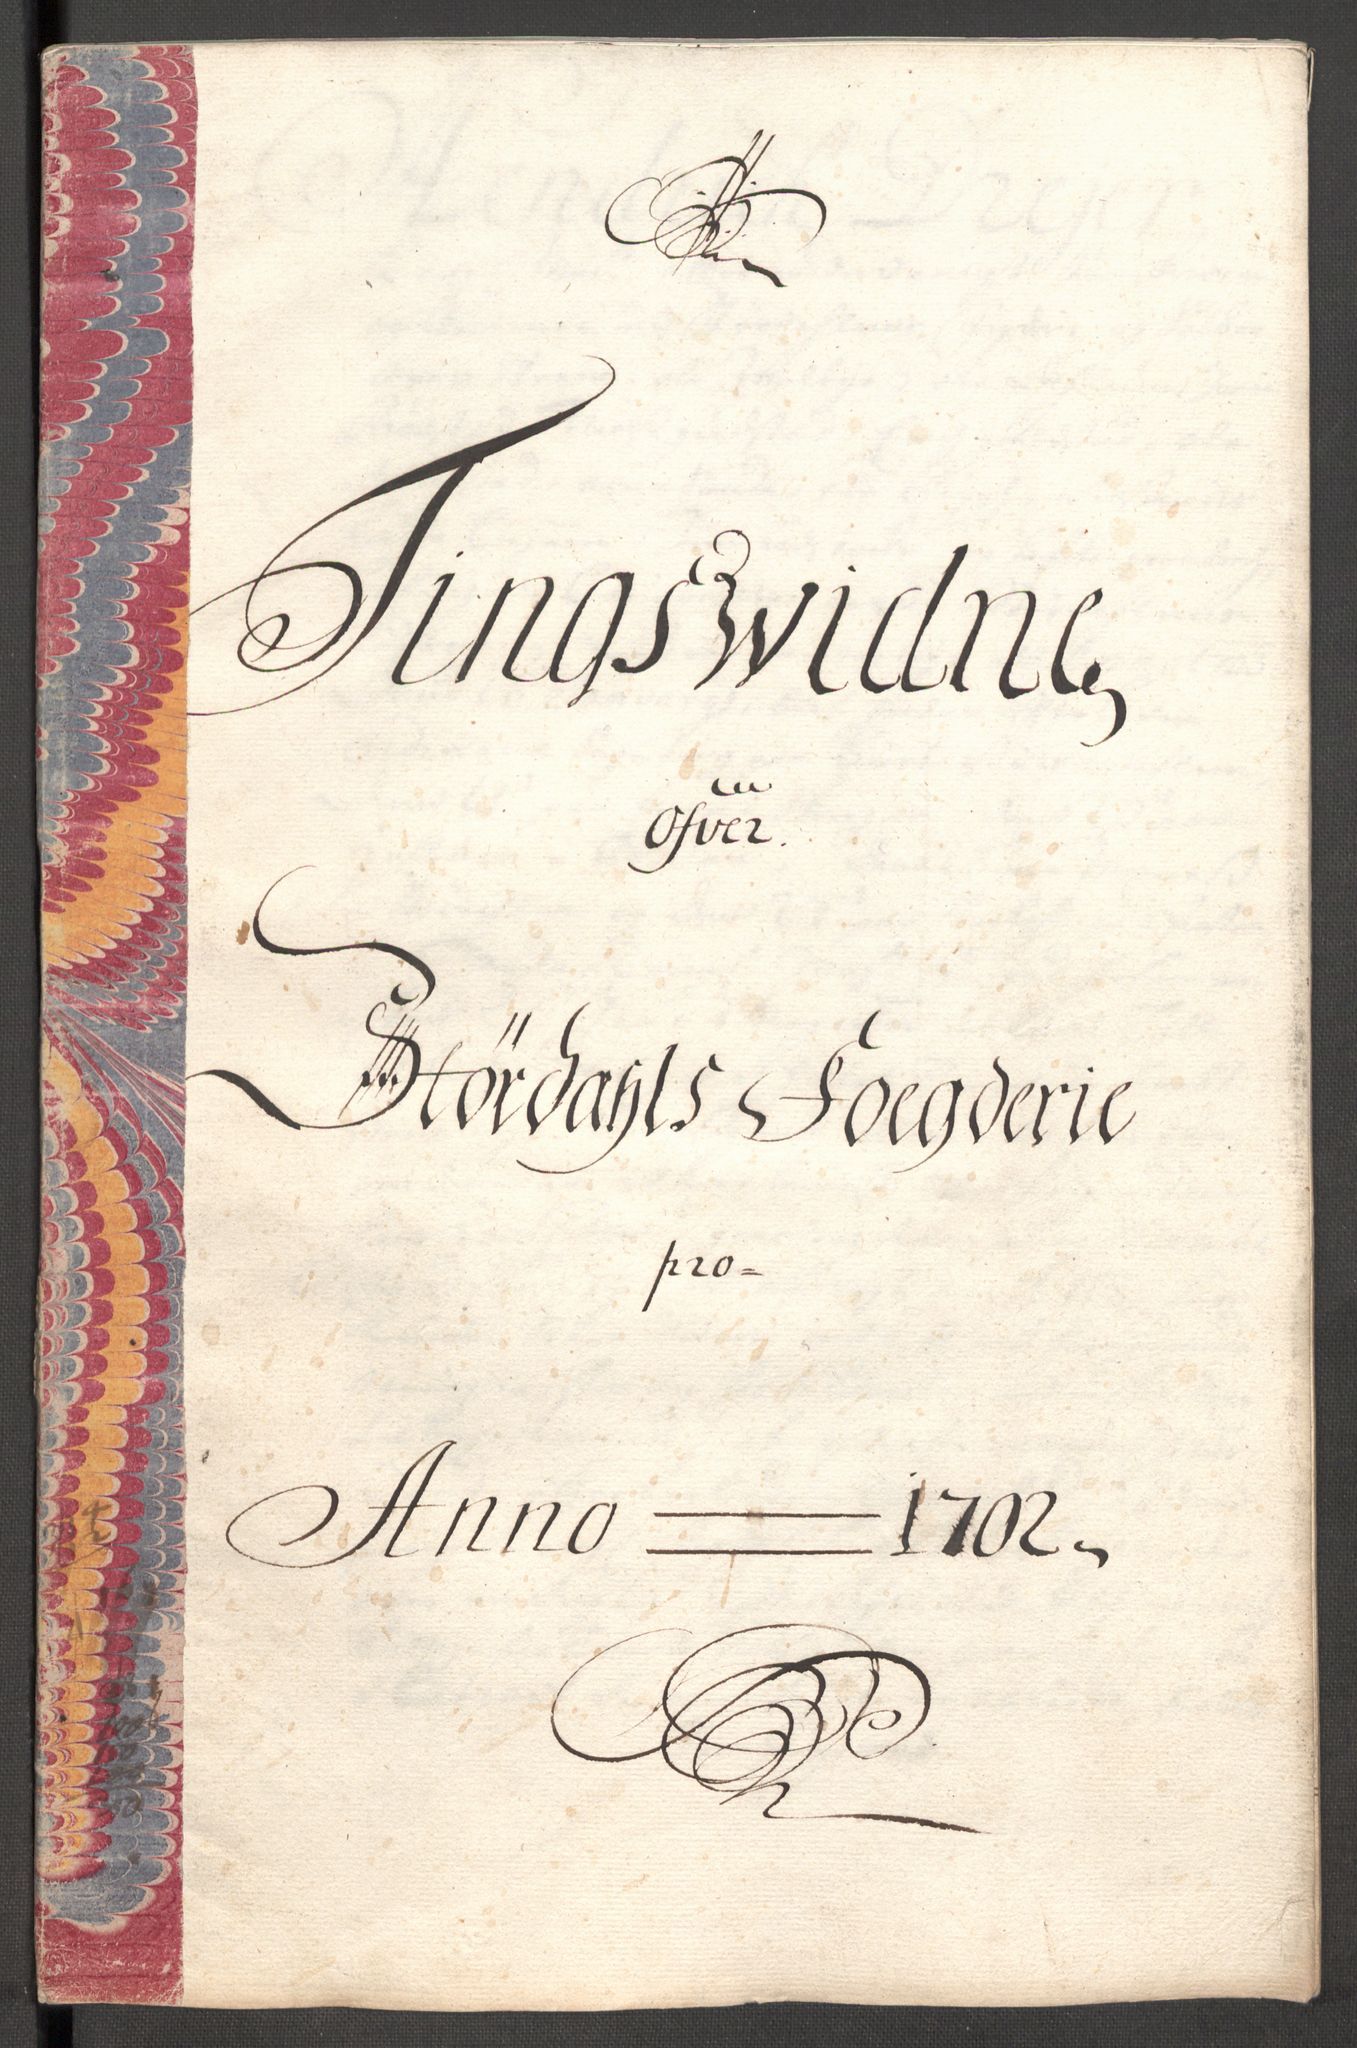 Tingswidne
Ofver
Stördahls Foegderie
pro=
Anno = 1702.